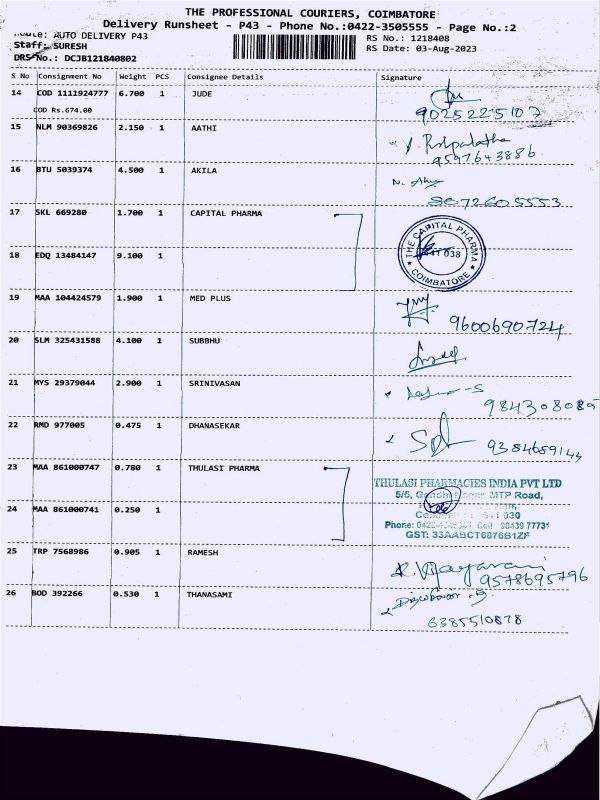 THE PROFESSIONAL COURIERS, COIMBATORE
Delivery Runsheet - P43 - Phone No.:0422-3505555 - Page No.:2
AUTO DELIVERY P43
RS No.: 1218408
Staff: SURESH
RS Date: 03-Aug-2023
DRS No.: DCJB121840802
S No Consignment No Weight PCS Consignee Details Signature
14 COD 1111924777 6.700 1 JUDE
COD Rs.674.00
9025225107
15 NLM 90369826 2.150 1 AATHI
9597643886
16 BTU 5039374 4.500 1 AKILA
72605553
17 SKL 669280 1.700 1 CAPITAL PHARMA
THE CAPITAL PHARMA
COIMBATORE
18 EDQ 13484147 9.100 1
19 MAA 104424579 1.900 1 MED PLUS
9600690724
20 SLM 325431588 4.100 1 SUBBHU
21 MYS 29379044 2.900 1 SRINIVASAN
22 RMD 977005 0.475 1 DHANASEKAR
9384659144
23 MAA 861000747 0.780 1 THULASI PHARMA
THULASI PHARMACIES INDIA PVT LTD
5/5, Gandhi Nagar MTP Road,
24 MAA 861000741 0.250 1
98439 77731
GST: 33AABCT6876B1ZF
25 TRP 7568986 0.905 1 RAMESH
9578695796
26 BOD 392266 0.530 1 THANASAMI
6385510878